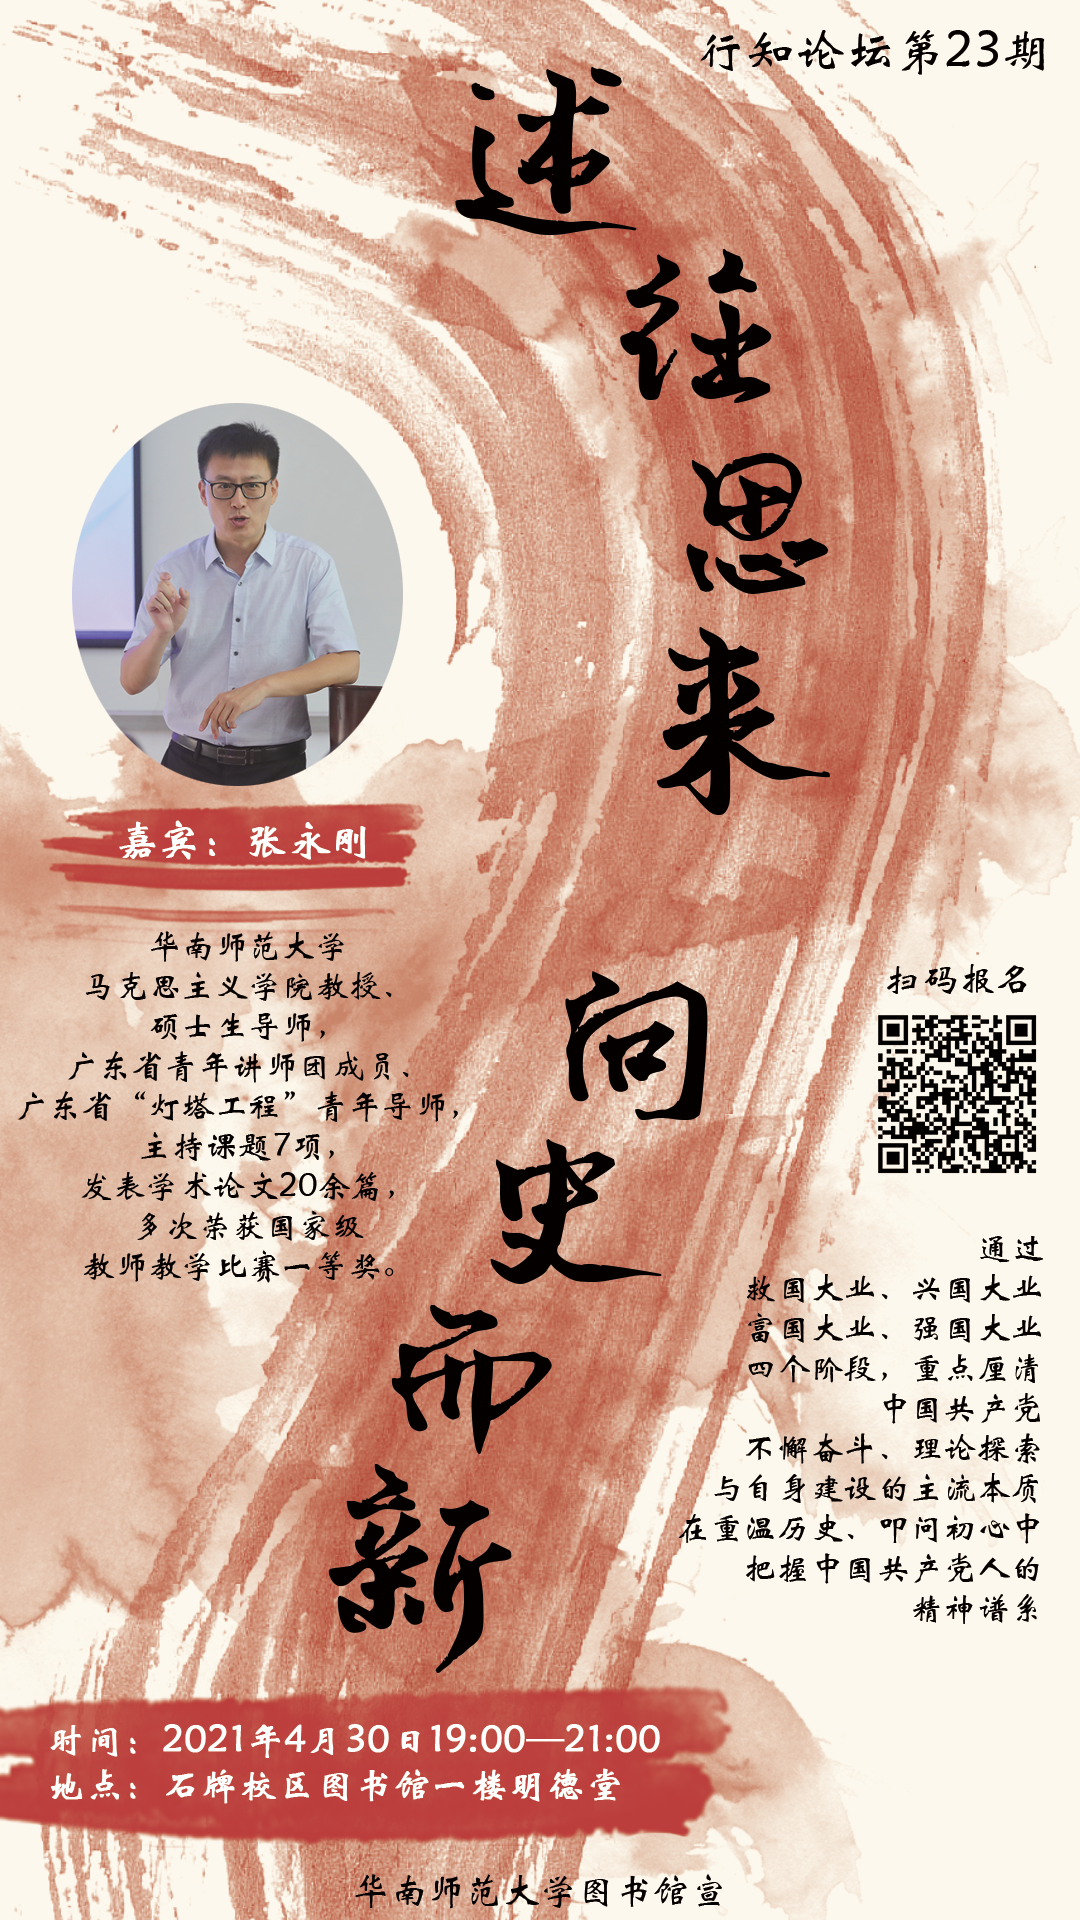 行知论坛第23期
述往思来
向史而新
嘉宾：张永刚
华南师范大学
马克思主义学院教授、
硕士生导师，
广东省青年讲师团成员、
广东省“灯塔工程”青年导师，
主持课题7项，
发表学术论文20余篇，
多次荣获国家级
教师教学比赛一等奖。
扫码报名
通过
救国大业、兴国大业
富国大业、强国大业
四个阶段，重点厘清
中国共产党
不懈奋斗、理论探索
与自身建设的主流本质
在重温历史、叩问初心中
把握中国共产党人的
精神谱系
时间：2021年4月30日19:00—21:00
地点：石牌校区图书馆一楼明德堂
华南师范大学图书馆宣